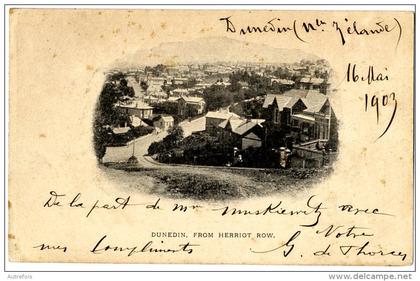 Dunedin (Nlle Zélande)
16 Mai
1903
De la part de mr muskiewitz avec
DUNEDIN, FROM HERRIOT ROW.
mes compliments
G. Notre
de Thorcey
Autrefois
delcampe.net